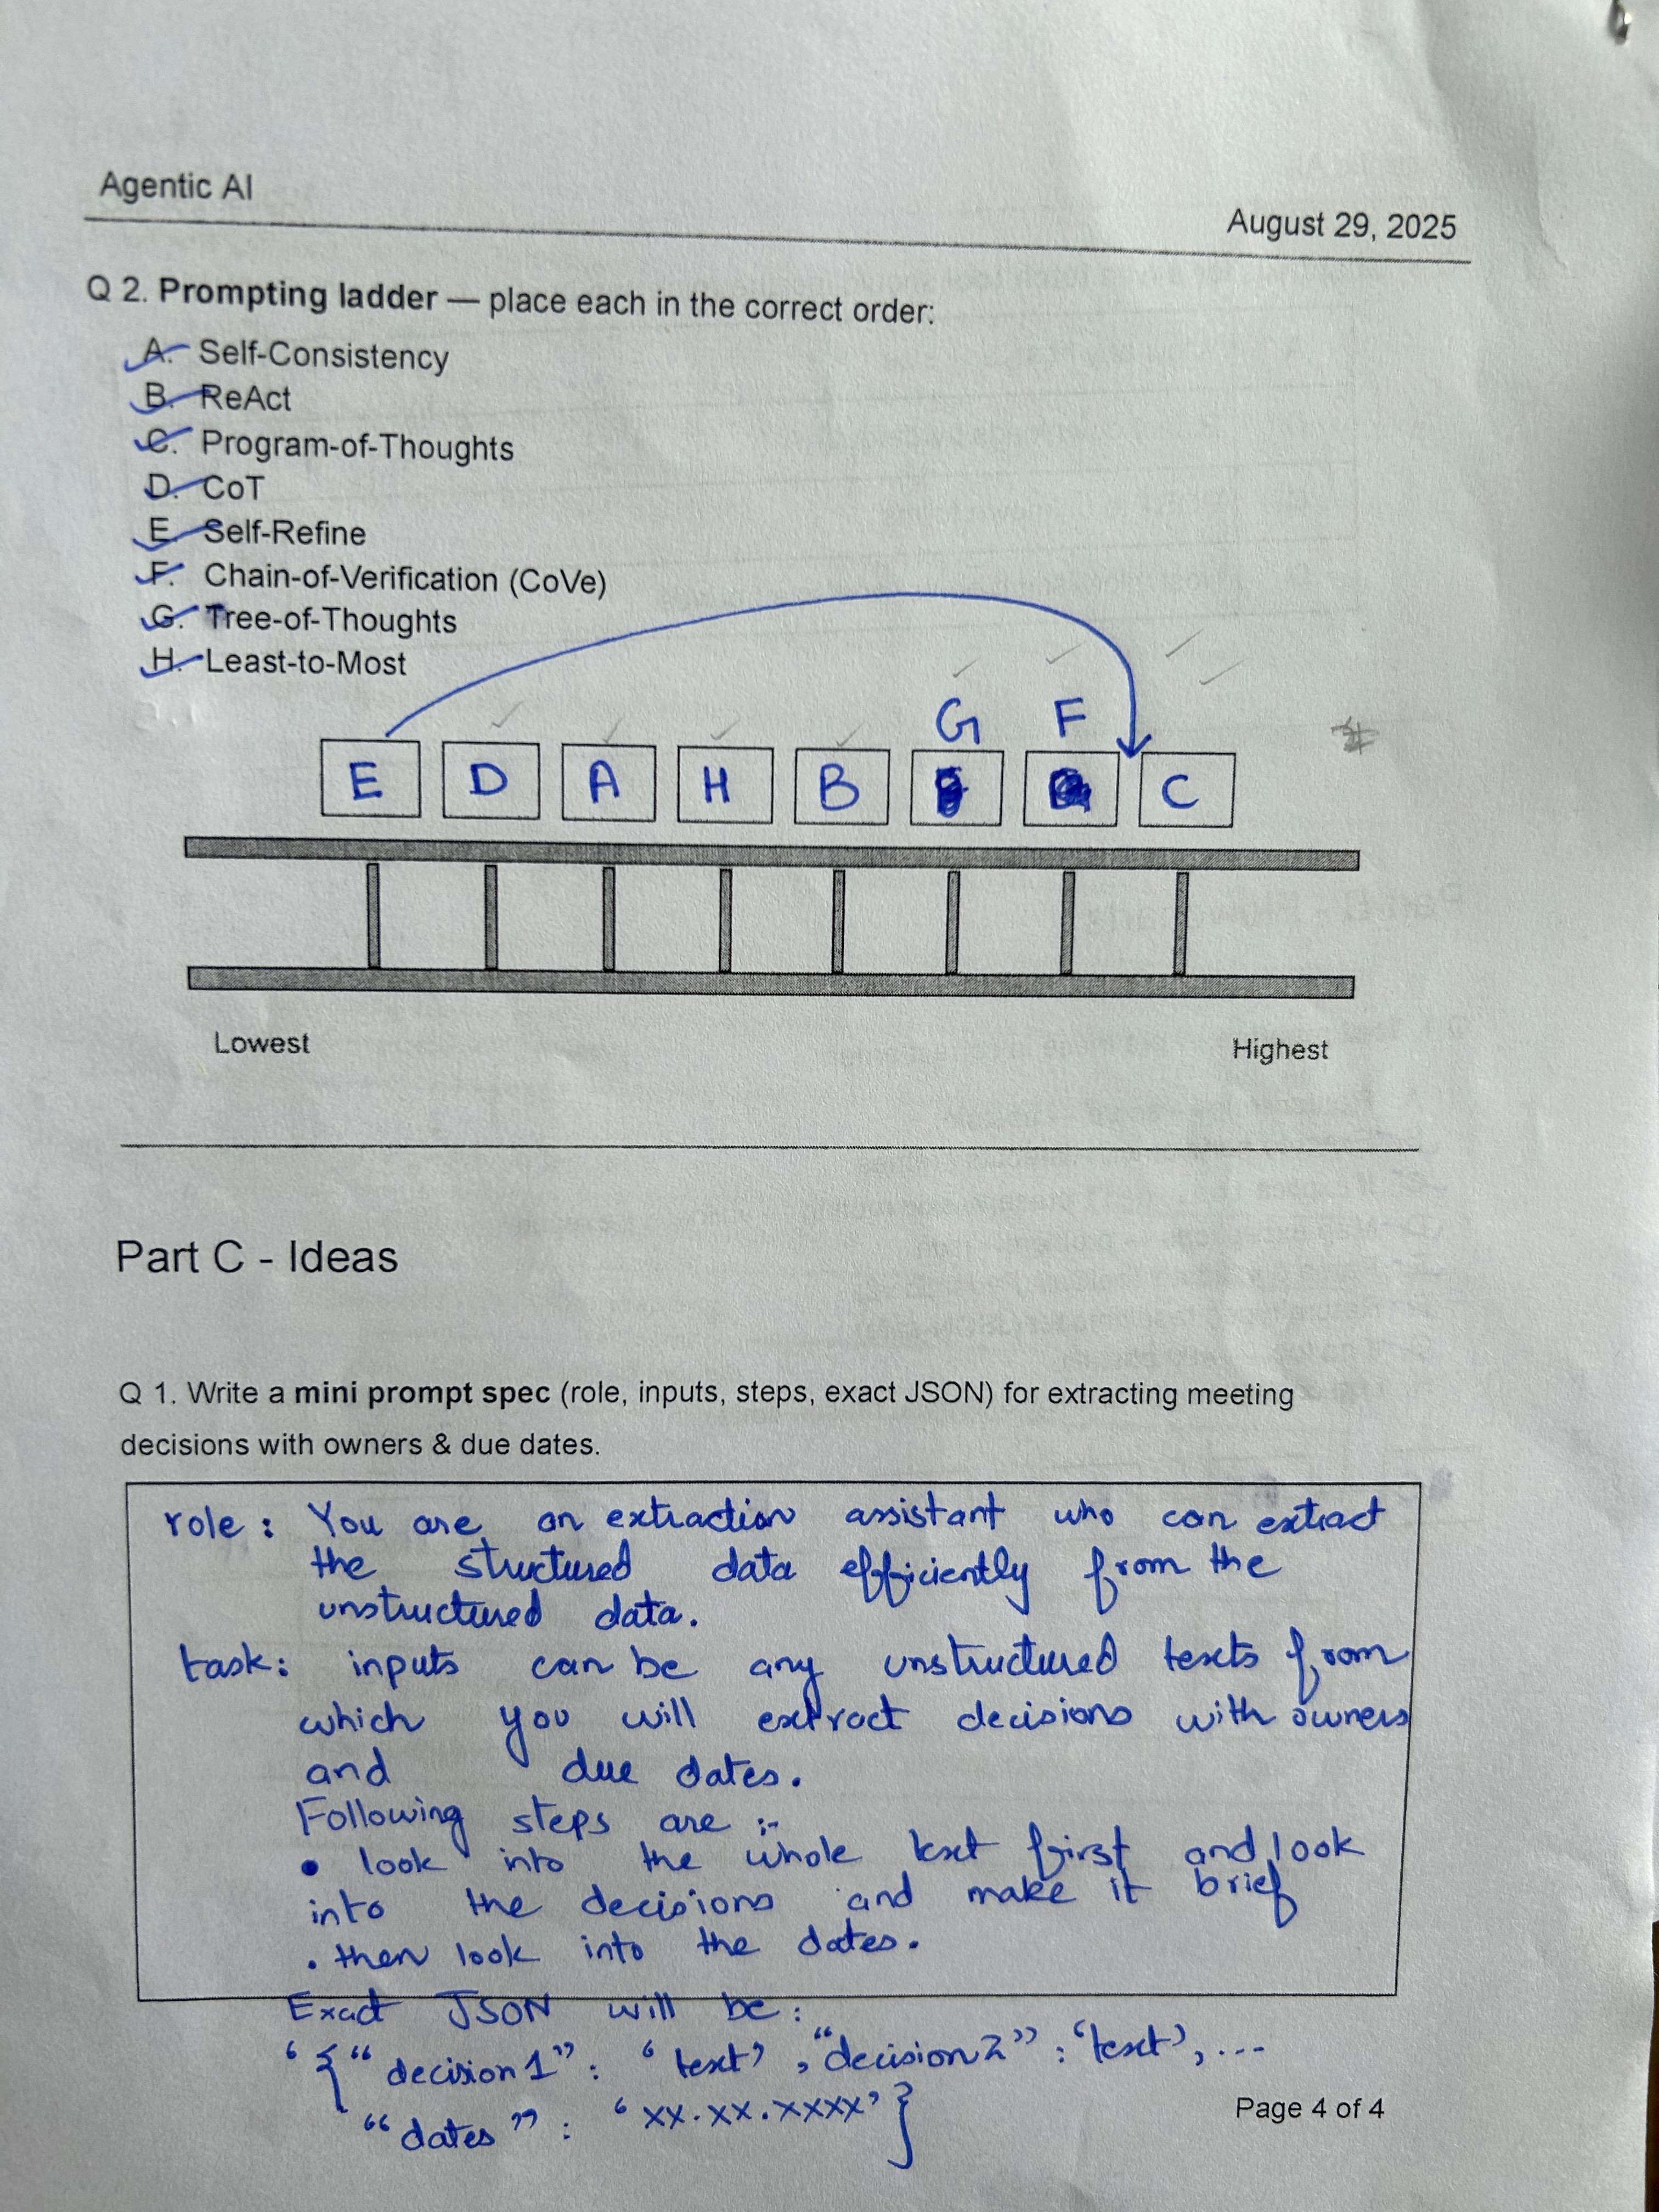 Agentic AI
August 29, 2025
Q 2. Prompting ladder — place each in the correct order:
A. Self-Consistency
B. ReAct
C. Program-of-Thoughts
D. CoT
E. Self-Refine
F. Chain-of-Verification (CoVe)
G. Tree-of-Thoughts
H. Least-to-Most
G F
E D A H B C
Lowest
Highest
Part C - Ideas
Q 1. Write a mini prompt spec (role, inputs, steps, exact JSON) for extracting meeting
decisions with owners & due dates.
role : You are an extraction assistant who can extract
the structured data efficiently from the
unstructured data.
task: inputs can be any unstructured texts from
which you will extract decisions with owners
and due dates.
Following steps are :-
• look into the whole text first and look
into the decisions and make it brief
. then look into the dates.
Exact JSON will be :
‘{“decision1” : ‘text’, “decision2” : ‘text’, ...
“dates” : ‘xx.xx.xxxx’}
Page 4 of 4